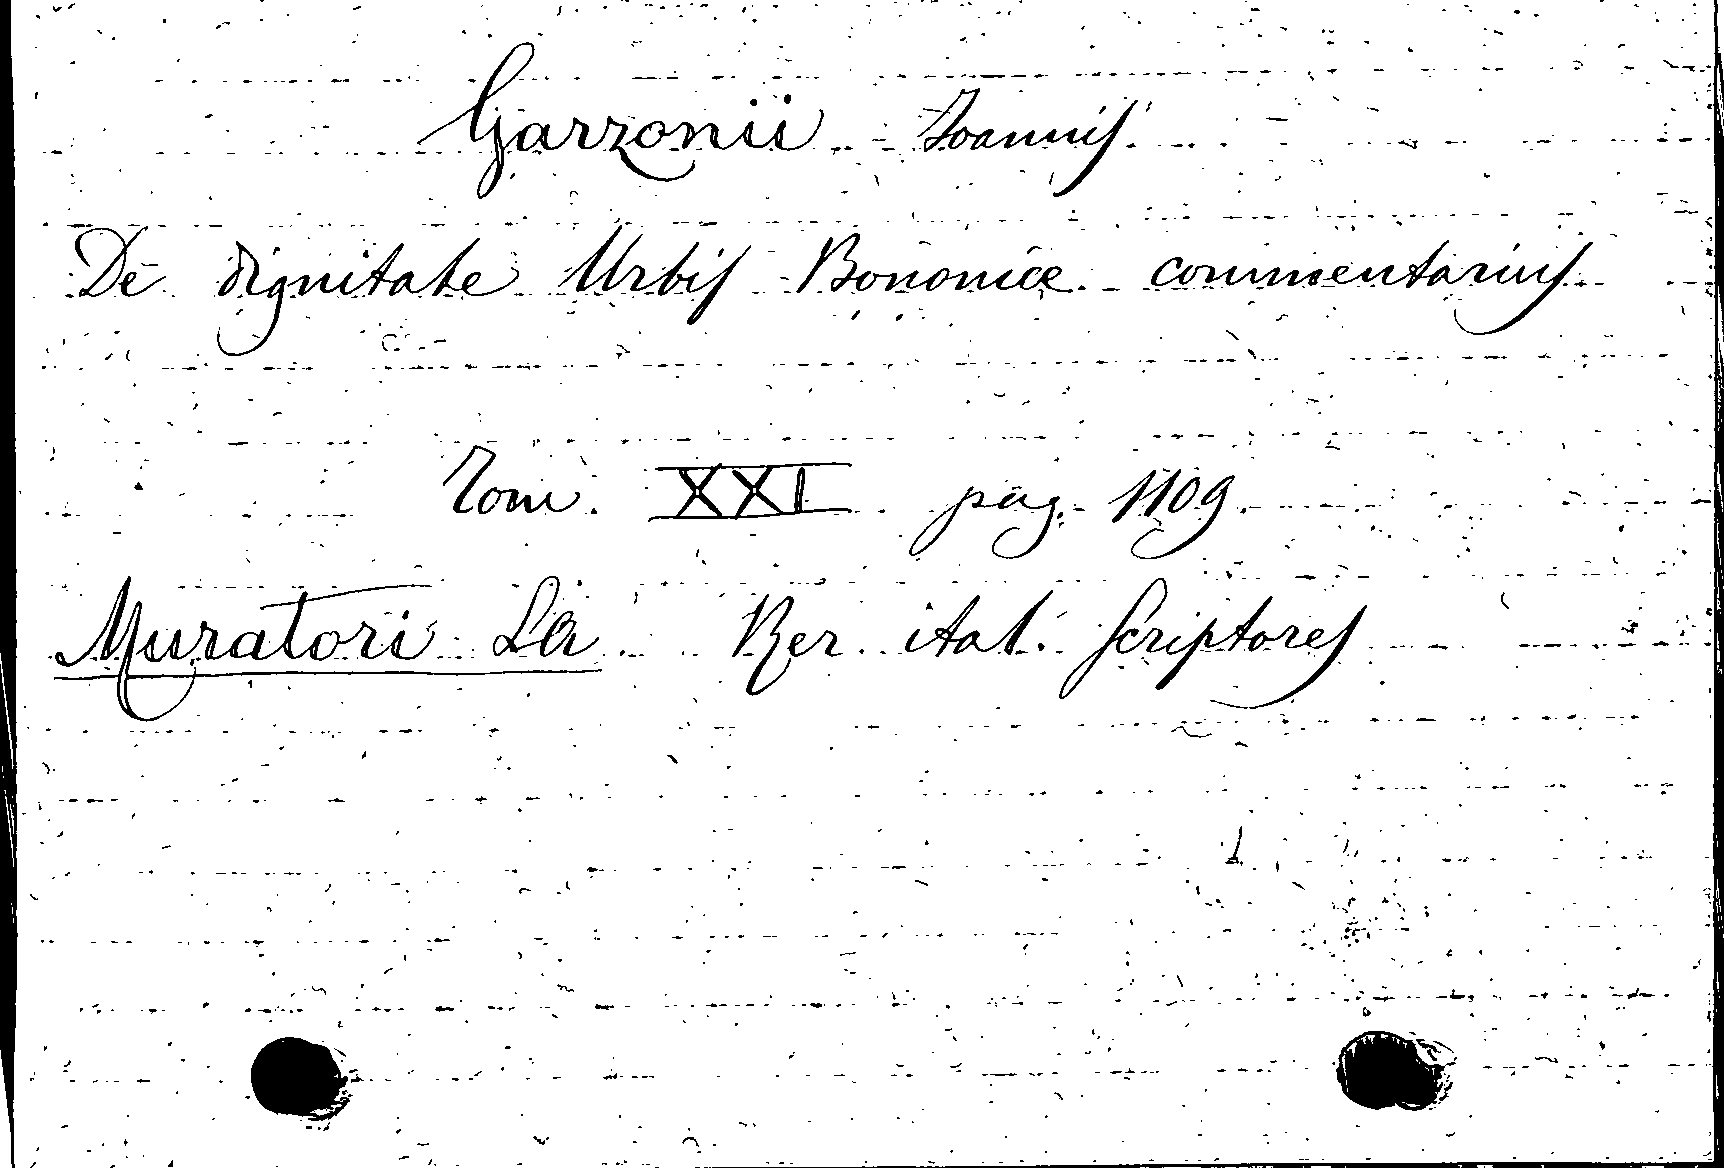 Garzonii Joannis
De dignitate Urbis Bononiæ commentarius
Tom. XXI. pag. 1109
Muratori LA. Rer. ital. Scriptores